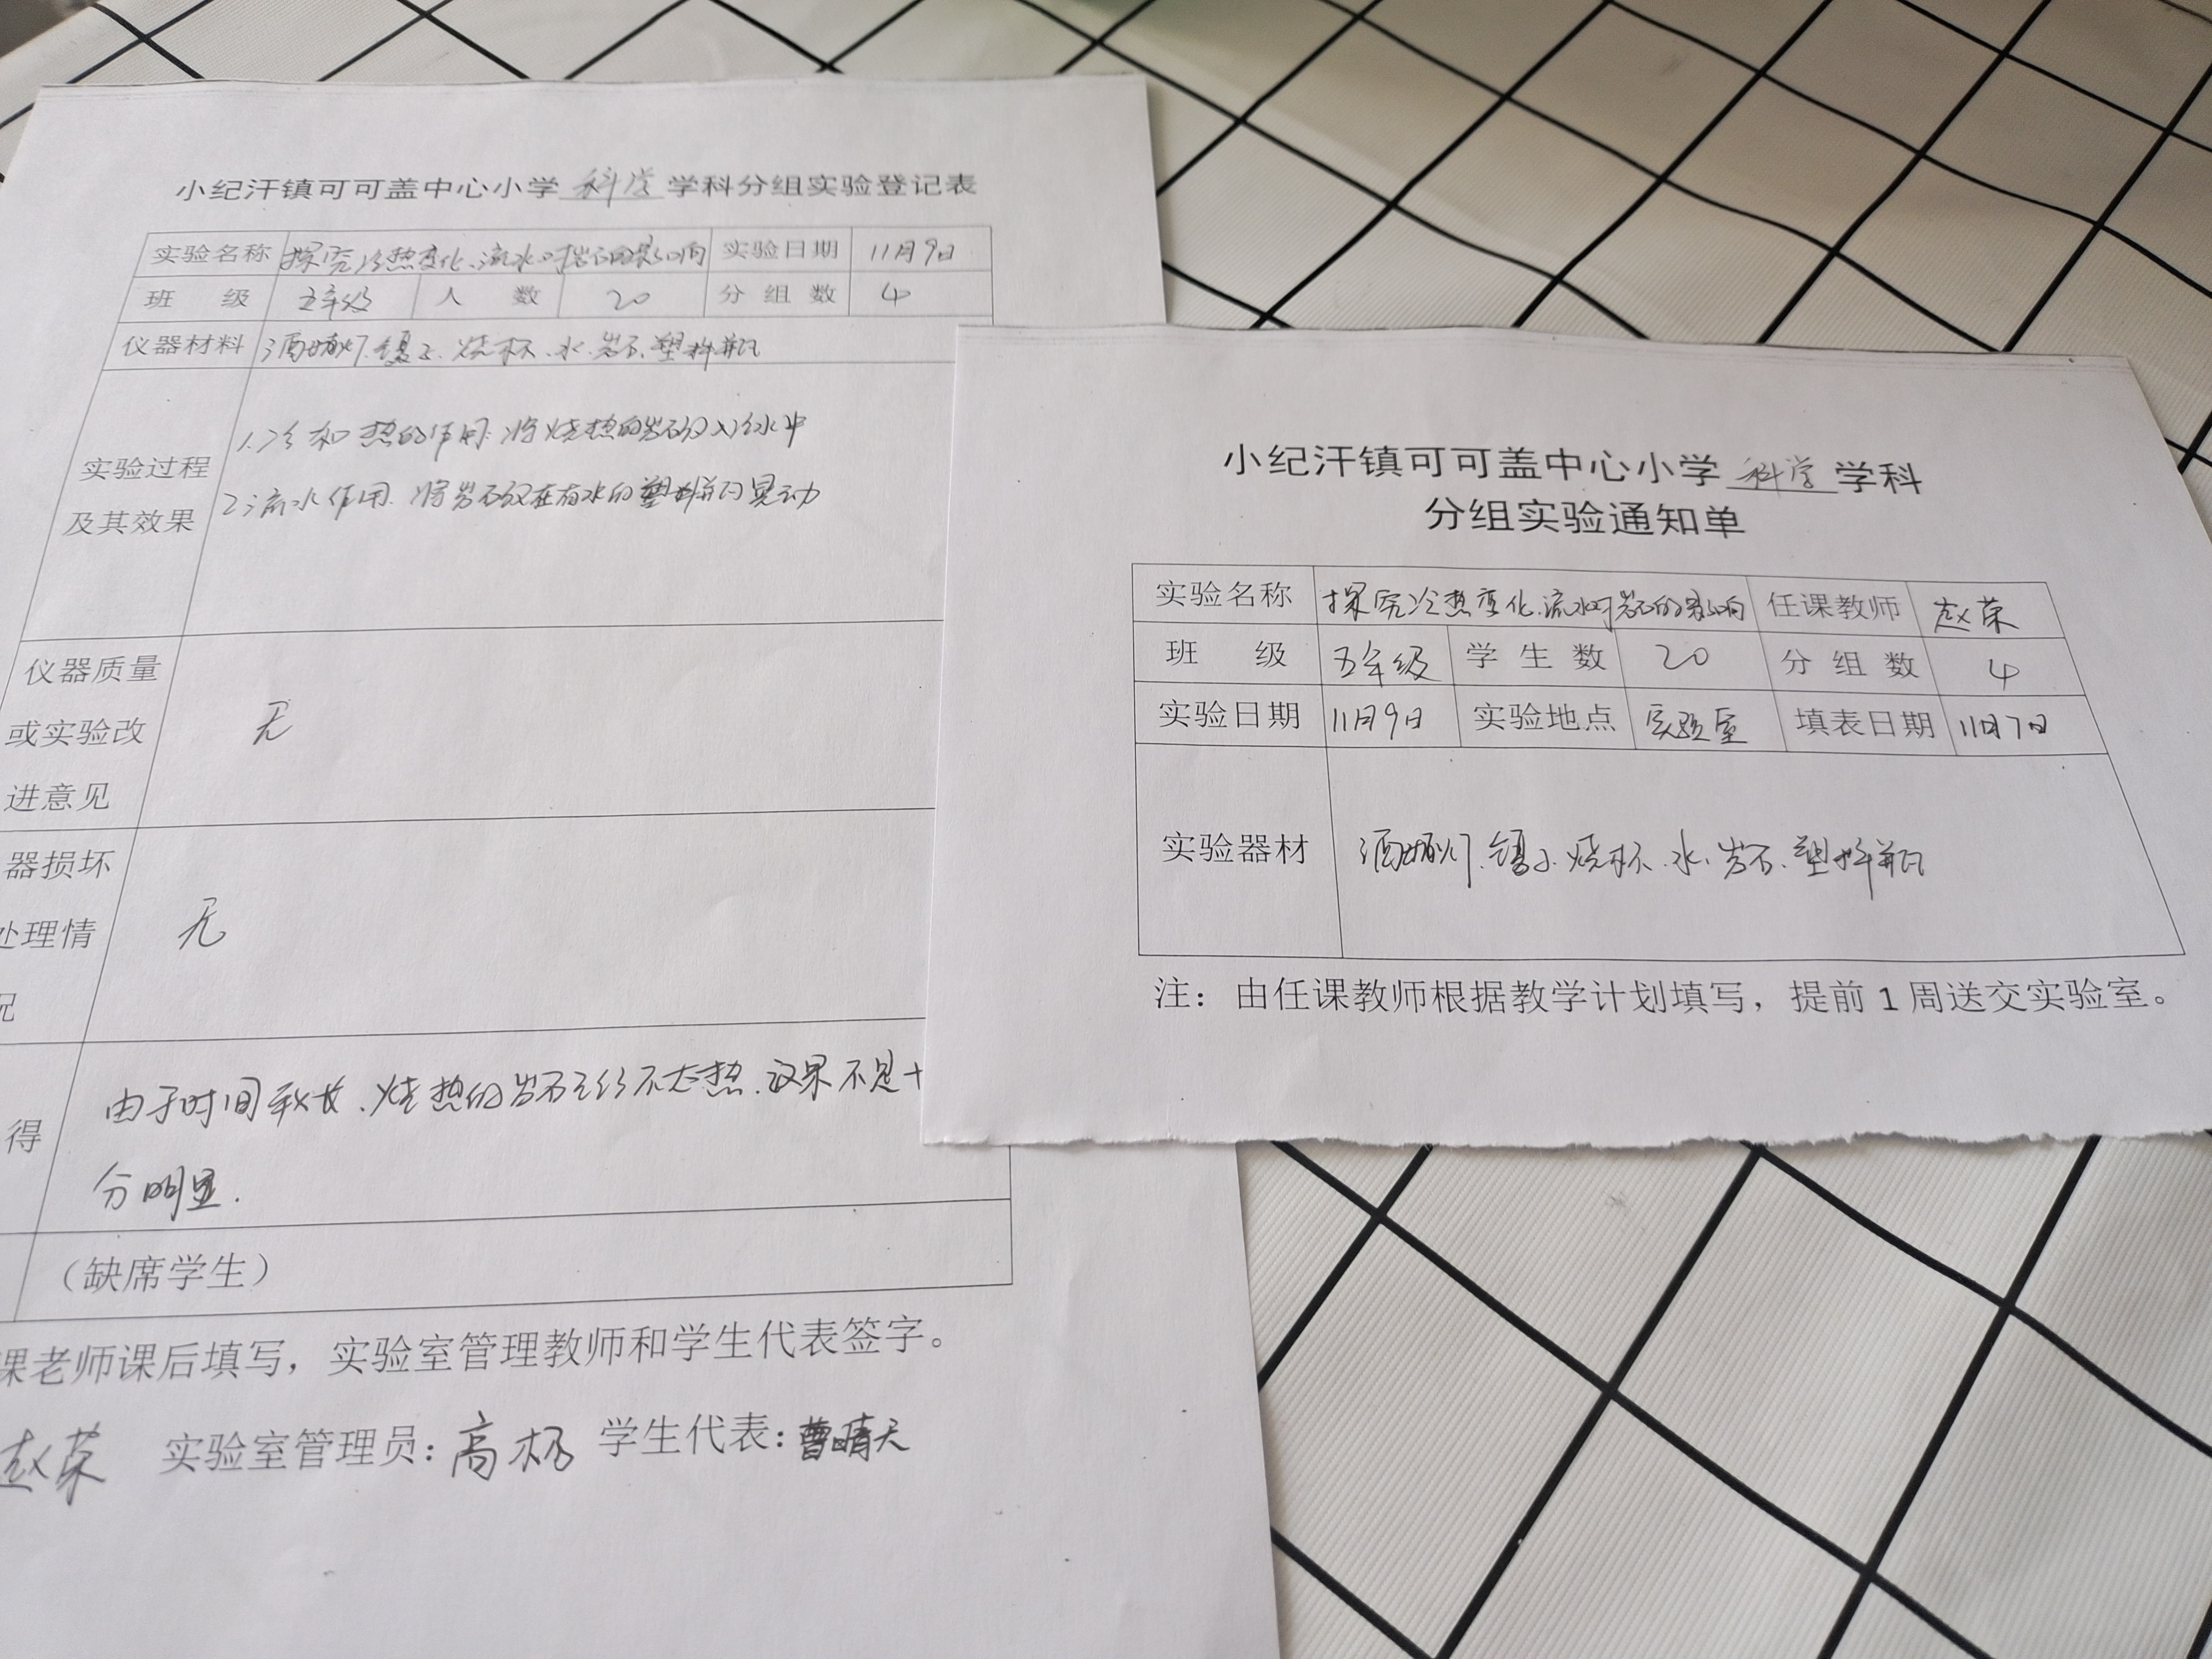 小纪汗镇可可盖中心小学 科学 学科分组实验登记表
实验名称 探究冷热变化、流水对岩石的影响 实验日期 11月9日
班 级 五年级 人 数 20 分 组 数 4
仪器材料 酒精灯、镊子、烧杯、水、岩石、塑料瓶
实验过程
及其效果
1.冷和热的作用.将烧热的岩石放入冷水中
2.流水作用.将岩石放在有水的塑料瓶内晃动
仪器质量
或实验改
进意见
无
器损坏
处理情
况
无
得
由于时间较长.烧热的岩石已经不太热.效果不是十
分明显.
（缺席学生）
课老师课后填写，实验室管理教师和学生代表签字。
赵荣 实验室管理员：高 学生代表：曹晴天
小纪汗镇可可盖中心小学 科学 学科
分组实验通知单
实验名称 探究冷热变化、流水对岩石的影响 任课教师 赵荣
班 级 五年级 学 生 数 20 分 组 数 4
实验日期 11月9日 实验地点 实验室 填表日期 11月7日
实验器材 酒精灯、镊子、烧杯、水、岩石、塑料瓶
注：由任课教师根据教学计划填写，提前1周送交实验室。